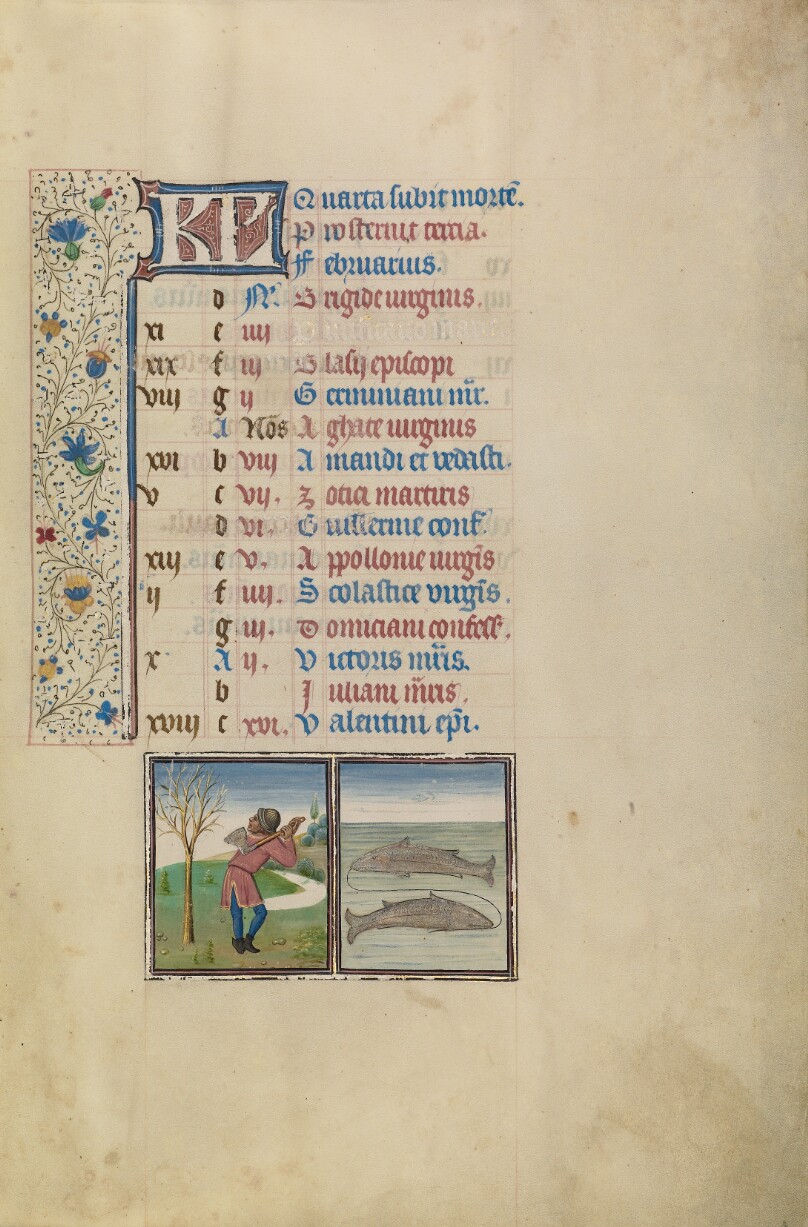 KL Quarta subit mortē.
Prosternit tercia.
Februarius.
d N. Brigide uirginis.
xi e iiij
xix f iij Blasij episcopi
viij g ij Germinani mr̄.
A Nōs Aghate uirginis
xvi b viij Amandi et vedasti.
v c vij. Zotici martiris
d vi. Guillermi conf.
xiij e v. Appollonie uirgīs
ij f iiij. Scolastice virgīs.
g iij. Domiciani confess.
x A ij. Victoris mr̄is.
b Juliani mr̄is.
xviij c xvi. Valentini ep̄i.